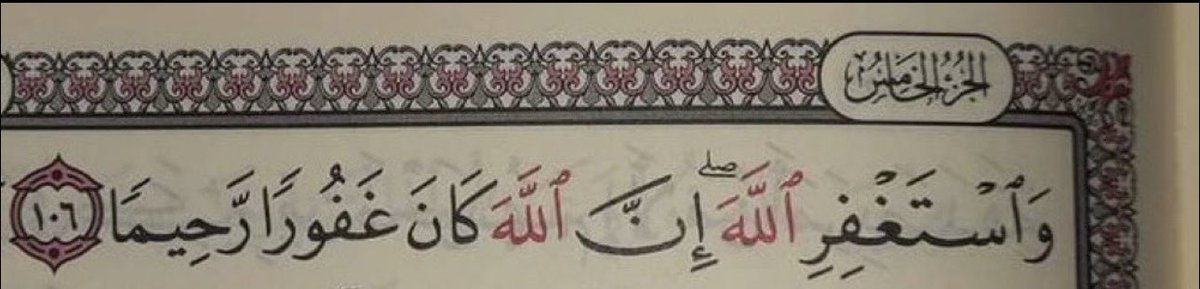 الجزء الخامس
وَٱسْتَغْفِرِ ٱللَّهَۖ إِنَّ ٱللَّهَ كَانَ غَفُورًا رَّحِيمًا ١٠٦